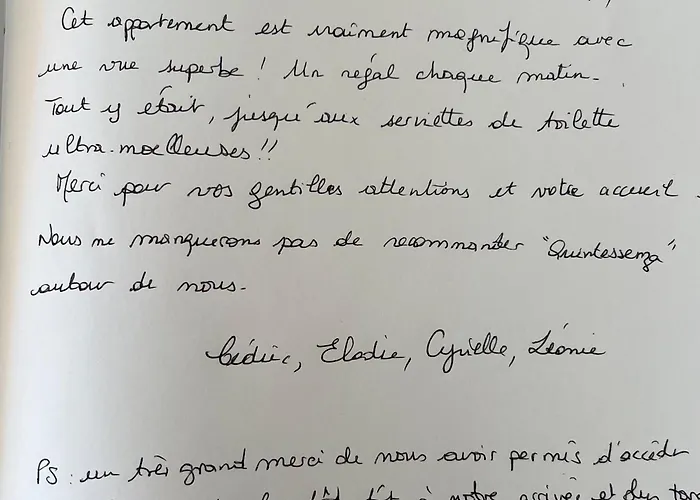 Cet appartement est vraiment magnifique avec
une vue superbe ! Un régal chaque matin.
Tout y était, jusqu'aux serviettes de toilette
ultra-moelleuses !!
Merci pour vos gentilles attentions et votre accueil.
Nous ne manquerons pas de recommander "Quintessenza"
autour de nous.
Cédric, Elodie, Cyrielle, Léonie
PS : un très grand merci de nous avoir permis d'accéder
à notre arrivée et d'un